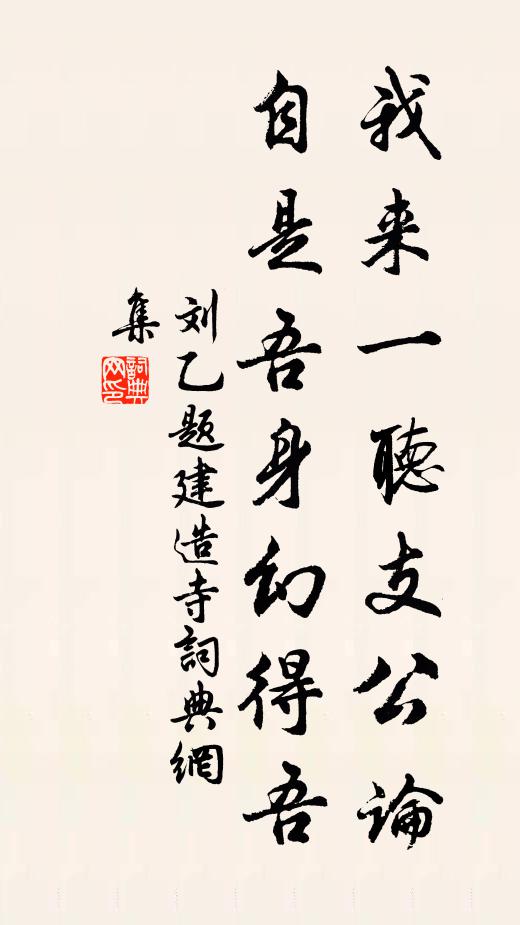 我来一聴支公論
自是吾身幻得吾
刘乙题建造寺詞典網
集
詞典
网印